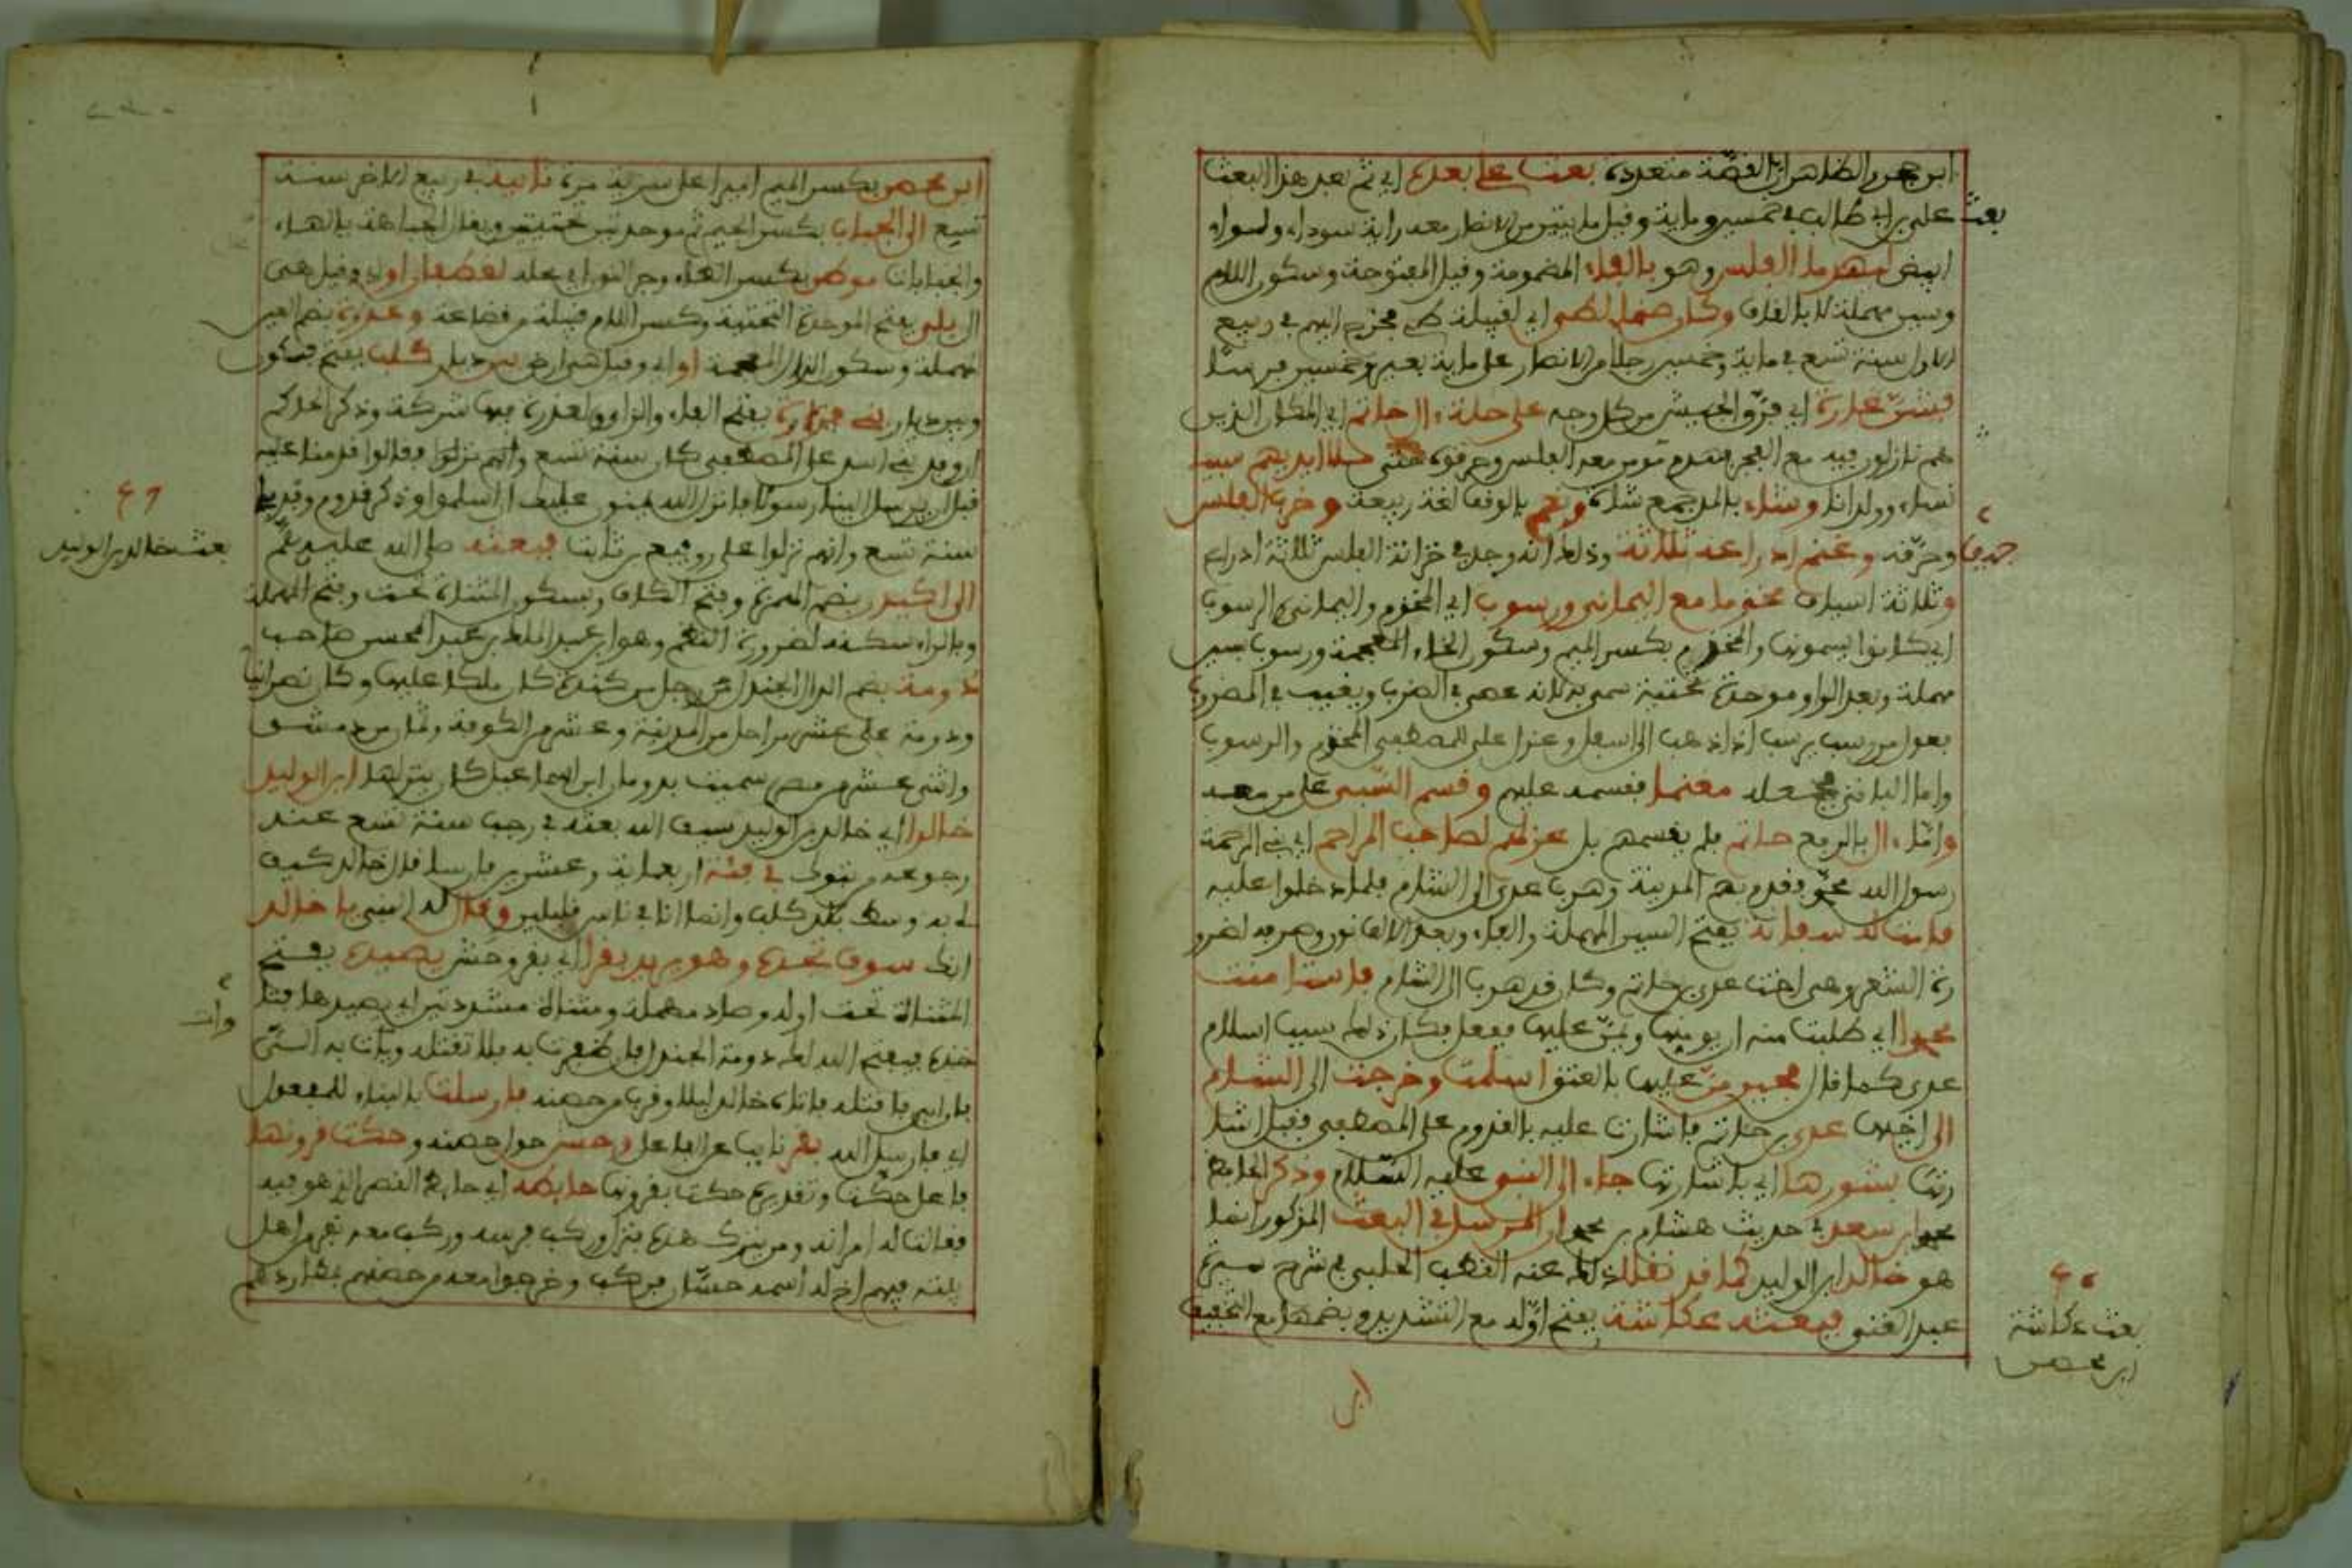 ابن حجر والظاهر ان القصة متعددة بعث علي بعده اي ثم بعد هذا البعث
بعث علي بن ابي طالب في خمسين وماية وقيل مايتين من الانصار معه راية سوداء ولواء
ابيض لهدم الفلس وهو بالفاء المضمومة وقيل المفتوحة وسكون اللام
وسين مهملة لا بالقاف وكان صنما لطي اي لقبيلة طي فخرج اليهم في ربيع
الاول سنة تسع في ماية وخمسين رجلا من الانصار على ماية بعير وخمسين فرسا
فشن غارة اي فرق الجيش من كل وجه على حلة ال حاتم اي المكان الذين
هم نازلون فيه مع الفجر فهدم من معه الفلس وحرقوه حتى ملا ايديهم سبيا
نساء وولدانا وشاء بالمد جمع شاة ونعم بالوقف لغة ربيعة وخرب الفلس
وحرقه وغنم ادراعه ثلاثة وذلك انه وجد في خزانة الفلس ثلاثة ادراع
وثلاثة اسياف مخذما مع اليماني ورسوب اي المخذم واليماني والرسوب
اي كانوا يسمونها والمخذم بكسر الميم وسكون الخاء المعجمة ورسوب بسين
مهملة وبعد الواو موحدة تحتية سمي به لانه يمضي في الضرب ويغيب في المضروب
فعول من رسب يرسب اذا ذهب الى اسفل وعزل على للمصطفى المخذم والرسوب
واما الباقي فجعله مغنما فقسمه عليهم وقسم السبي على من معه
واما ال بالرفع حاتم فلم يقسمهم بل عزلهم لصاحب المراحم اي نبي الرحمة
رسول الله فقدم بهم المدينة وهرب عدي الى الشام فلما دخلوا عليه
قامت له سفانة بفتح السين المهملة والفاء وبعد الالف نون وصرفه لضرو
رة الشعر وهي اخت عدي بن حاتم وكان قد هرب الى الشام فاستامنت
اي طلبت منه ان يومنها ويمن عليها ففعل فكان ذلك سبب اسلام
عدي كما قال فحين من عليها بالعتق اسلمت وخرجت الى الشام
الى اخيها عدي بن حاتم فاشارت عليه بالقدوم على المصطفى فقبل اشا
رتها بشورها اي باشارتها جاء الى النبي عليه السلام وذكر الحافظ
ابن سعد في حديث هشام بن ان المرسل في البعث المذكور انما
هو خالد ابن الوليد كما قد نقل ذلك عنه القطب الحلبي في شرح سيرة
عبد الغني فبعثه عكاشة بفتح اوله مع التشديد وبضمها مع التخفيف
ابن
بعث عكاشة
ابن محصن
ابن محصن بكسر الميم اميرا على سرية مرة ثانية في ربيع الاخر سنة
تسع الى الجباب بكسر الجيم ثم موحدتين خفيفتين ويقال الجباهة بالهاء
والجبابات موطن بكسر الطاء وجر النون اي محله لغطفان او وقيل هي
ال بلي بفتح الموحدة التحتية وكسر اللام قبيلة من قضاعة وعذرة بضم العين
المهملة وسكون الذال المعجمة او اي وقيل هي ارض بين ديار كلب بفتح فسكون
وبين ديار بني فزارة بفتح الفاء والزاء ولعذرة فيها شركة وذكر الحاكم
ان وفد بني اسد على المصطفى كان سنة تسع وانهم نزلوا فقالوا قدمنا عليه
قبل ان يرسل الينا رسولا فانزل الله يمنون عليك ان اسلموا وذكر قدوم وفد بلي
سنة تسع وانهم نزلوا على رويفع بن ثابت فبعثه صلى الله عليه وسلم
الى اكيدر بضم الهمزة وفتح الكاف وسكون المثناة تحت وفتح المهملة
وبالراء سكنه لضرورة النظم وهو ابن عبد الملك بن عبد المحسن صاحب
دومة بضم الدال الجندل رجل من كندة كان ملكا عليها وكان نصرانيا
ودومة على عشر مراحل من المدينة وعشر من الكوفة وثمان من دمشق
واثني عشر من مصر سميت بدومان ابن اسماعيل كان ينزلها ابن الوليد
خالدا اي خالد بن الوليد سيف الله بعثه في رجب سنة تسع عند
رجوعه من تبوك في فئة اربعماية وعشرين فارسا قال خالد كيف
لي به وسط بلاد كلب وانما انا في ناس قليلين وقال له النبي يا خالد
انك سوف تجده وهو يريد بقرا اي بقر وحش يصيده بفتح
المثناة تحت اوله وصاد مهملة ومثناة مشددتين اي يصيدها فتا
خذه فيفتح الله لك دومة الجندل فان ظفرت به فلا تقتله وات به الي
فان ابى فاقتله فاتاه خالد ليلا وقرب من حصنه فارسلت بالبناء للمفعول
اي فارسل الله بقر نايب عن الفاعل وحش حول حصنه وحكت قرونها
فاعل حكت وتقديره حكت بقرونها حايطه اي حايط القصر الذي هو فيه
فقالت له امراته ومن يترك هذه فنزل وركب فرسه وركب معه نفر من اهل
بيته فيهم اخ له اسمه حسان فركب وخرجوا معه من حصنهم بمطاردهم
٤٦
بعث خالد بن الوليد
وات